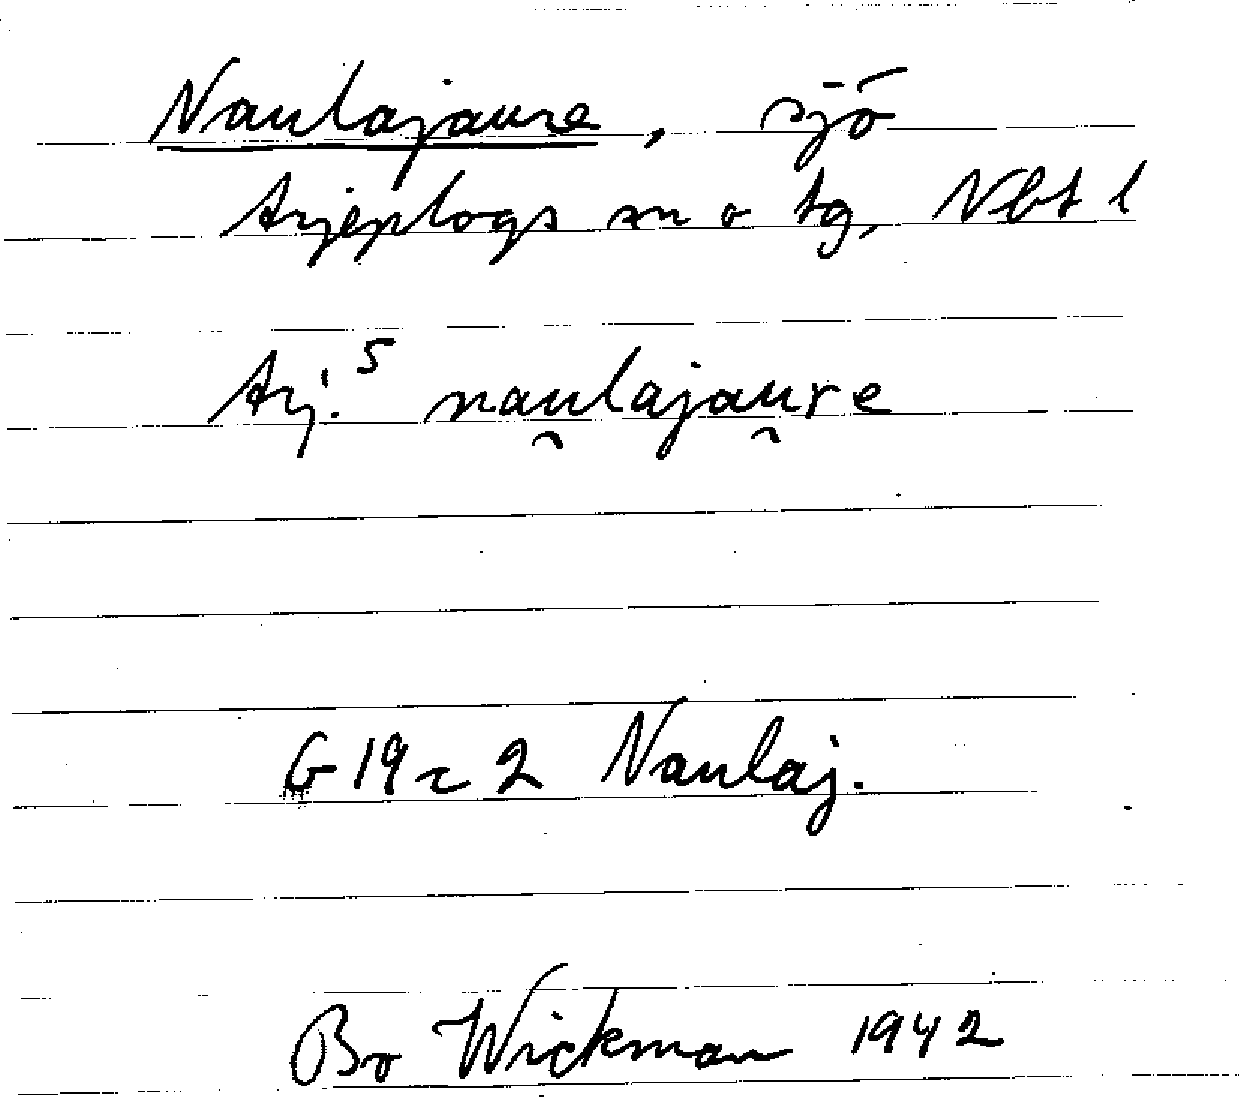 Naulajaure, sjö
Arjeplogs sn o tg, Nbt l
Arj.S nau̯lajau̯re
G 19 c 2 Naulaj.
Bo Wickman 1942